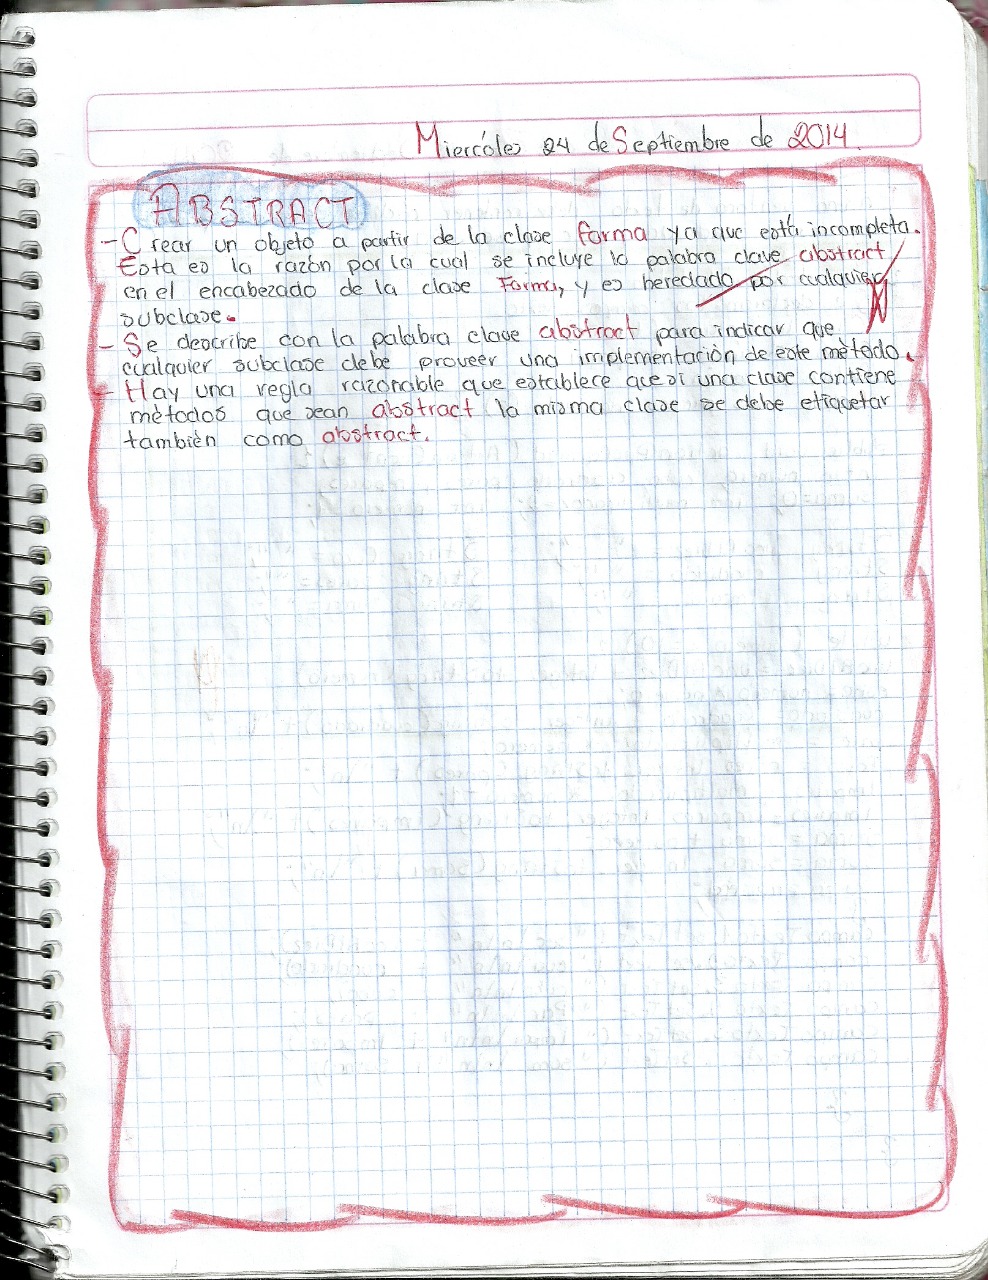 Miercóles 24 de Septiembre de 2014.
ABSTRACT
- Crear un objeto a partir de la clase forma ya que está incompleta.
Esta es la razón por la cual se incluye la palabra clave abstract
en el encabezado de la clase Forma, y es heredado por cualquier
subclase.
- Se describe con la palabra clave abstract para indicar que
cualquier subclase debe proveer una implementación de este mètodo.
- Hay una regla razonable que establece que si una clase contiene
mètodos que sean abstract la misma clase se debe etiquetar
tambièn como abstract.